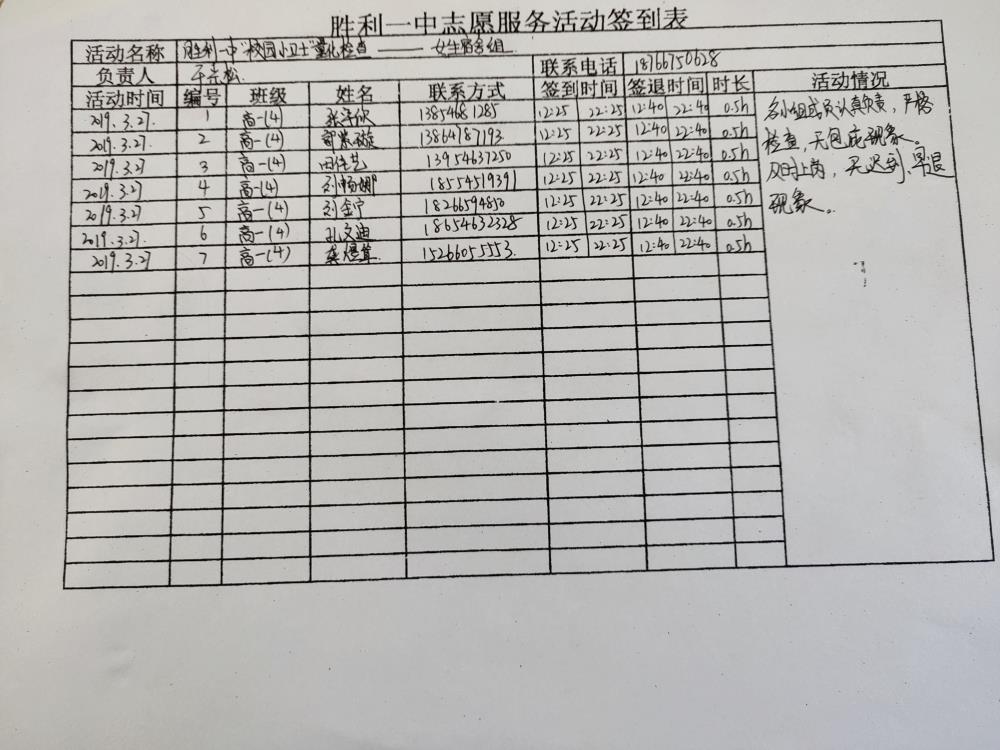 胜利一中志愿服务活动签到表
活动名称 胜利一中"校园小卫士"量化检查 —— 女生宿舍组
负责人 联系电话 18766750628
活动时间 编号 班级 姓名 联系方式 签到时间 签退时间 时长 活动情况
2019.3.27. 1 高一(4) 13854681285 12:25 22:25 12:40 22:40 0.5h
2019.3.27. 2 高一(4) 13864187193 12:25 22:25 12:40 22:40 0.5h
2019.3.27 3 高一(4) 田佳艺 13954637250 12:25 22:25 12:40 22:40 0.5h
2019.3.27 4 高一(4) 18554519391 12:25 22:25 12:40 22:40 0.5h
2019.3.27 5 高一(4) 刘金宁 18266594850 12:25 22:25 12:40 22:40 0.5h
2019.3.27. 6 高一(4) 孔文迪 18654632328 12:25 22:25 12:40 22:40 0.5h
2019.3.27 7 高一(4) 15266055553. 12:25 22:25 12:40 22:40 0.5h
各小组成员认真负责，严格
检查，无包庇现象。
及时上岗，无迟到、早退
现象。